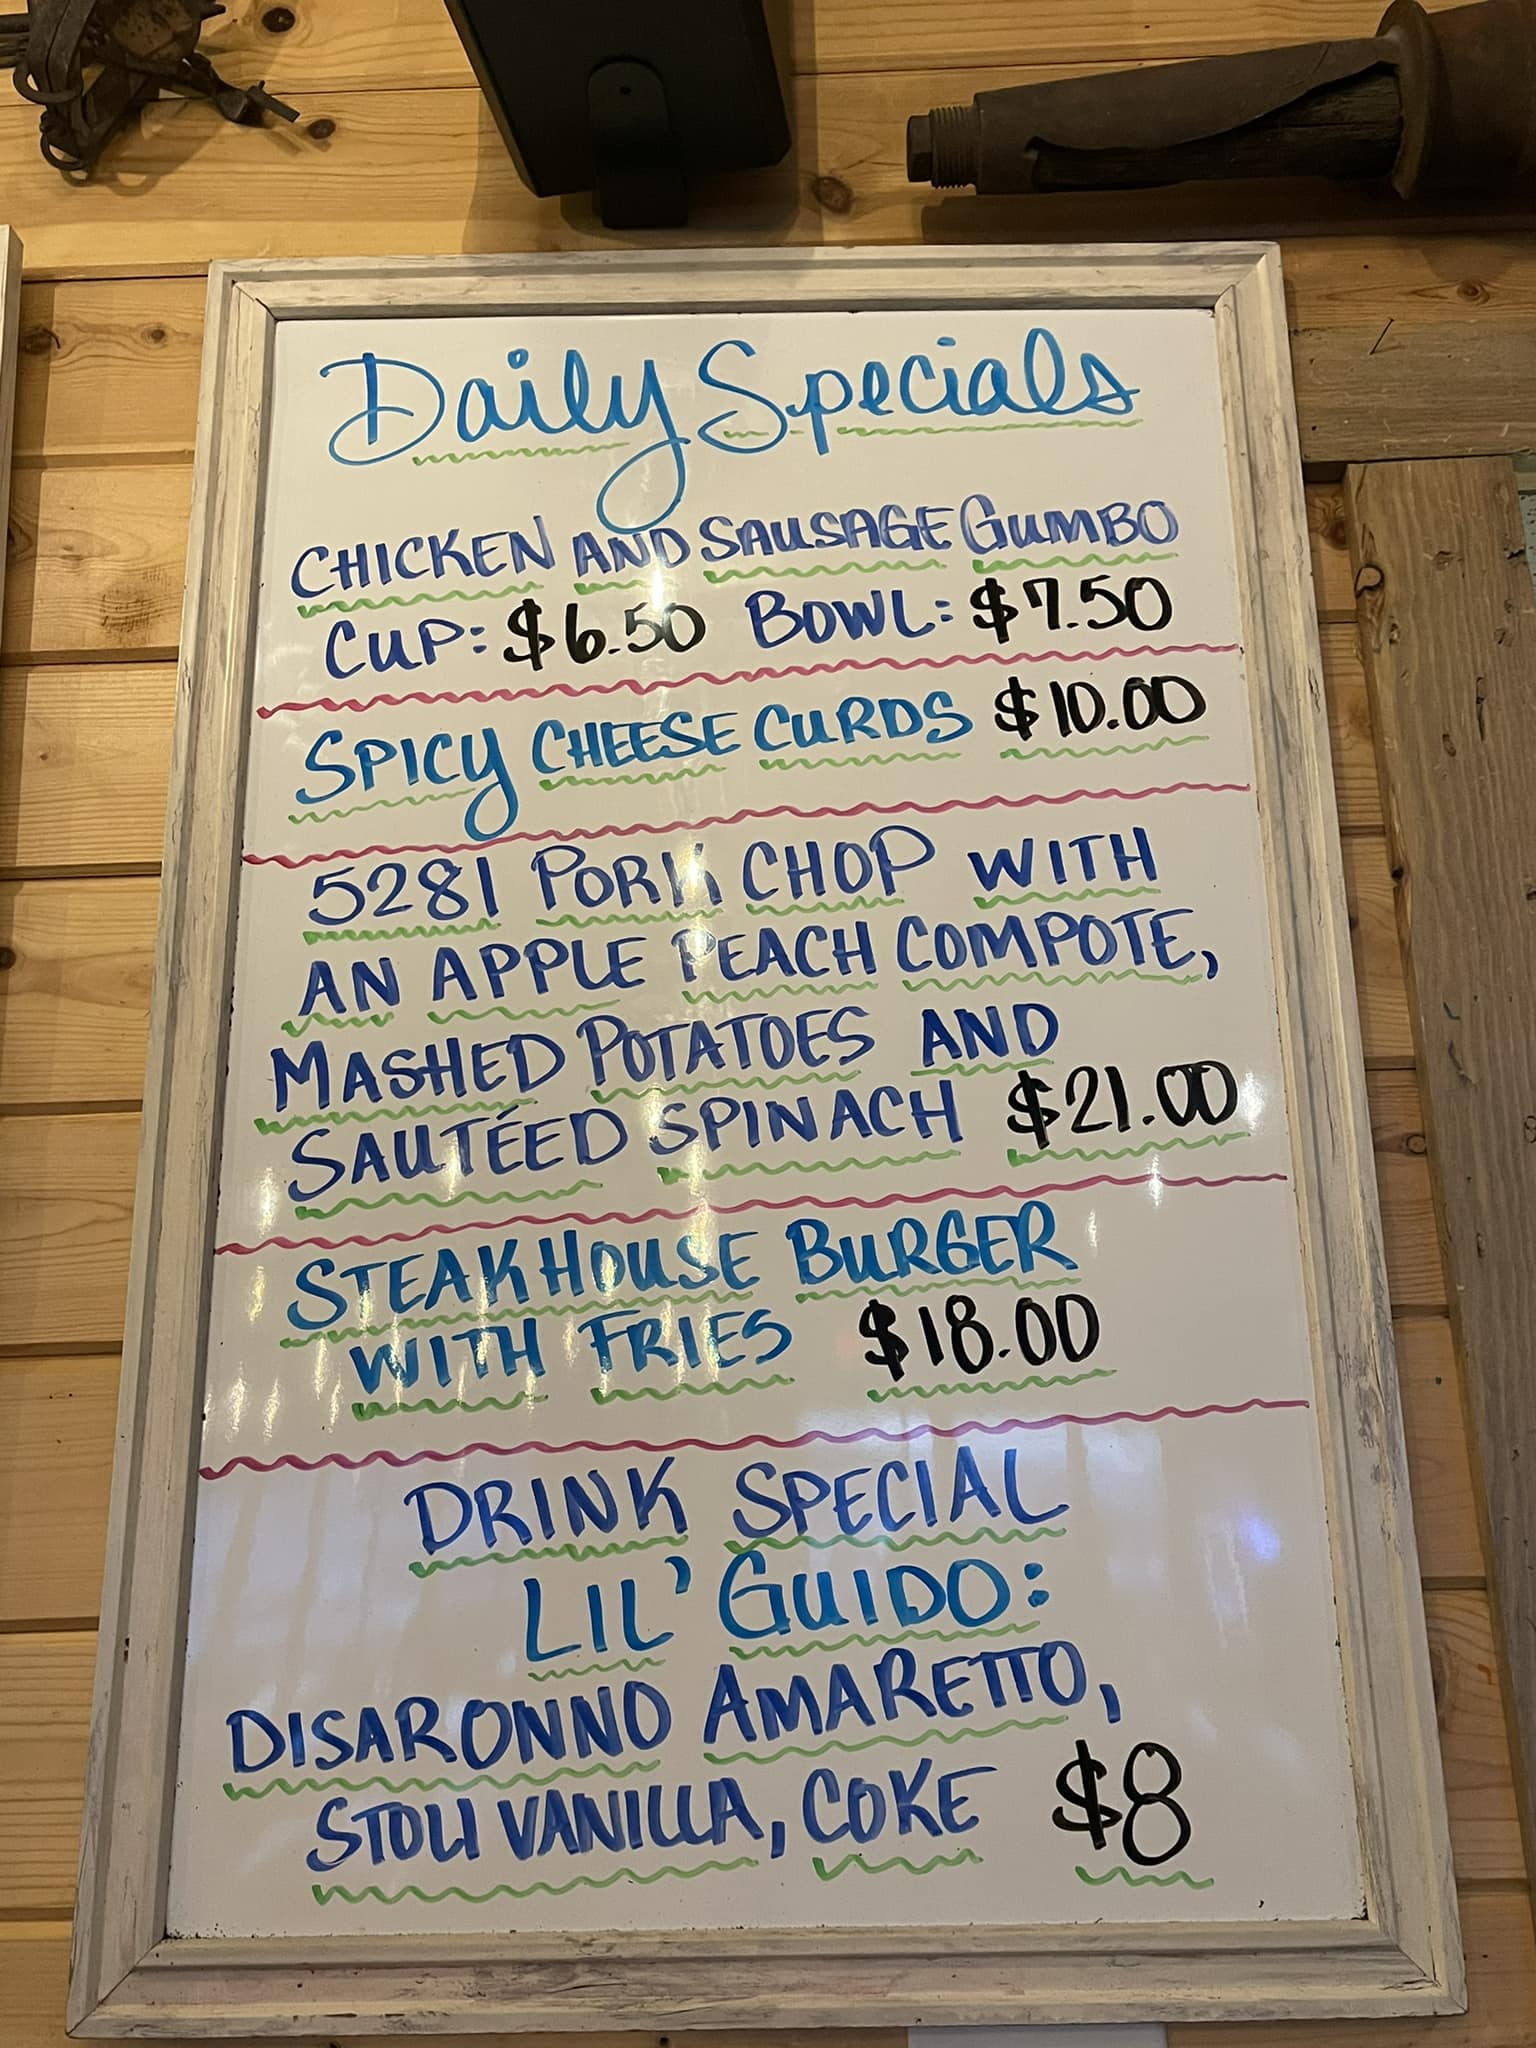 Daily Specials
CHICKEN AND SAUSAGE GUMBO
CUP: $6.50 BOWL: $7.50
SPICY CHEESE CURDS $10.00
5281 PORK CHOP WITH
AN APPLE PEACH COMPOTE,
MASHED POTATOES AND
SAUTÉED SPINACH $21.00
STEAKHOUSE BURGER
WITH FRIES $18.00
DRINK SPECIAL
LIL' GUIDO:
DISARONNO AMARETTO,
STOLI VANILLA, COKE $8